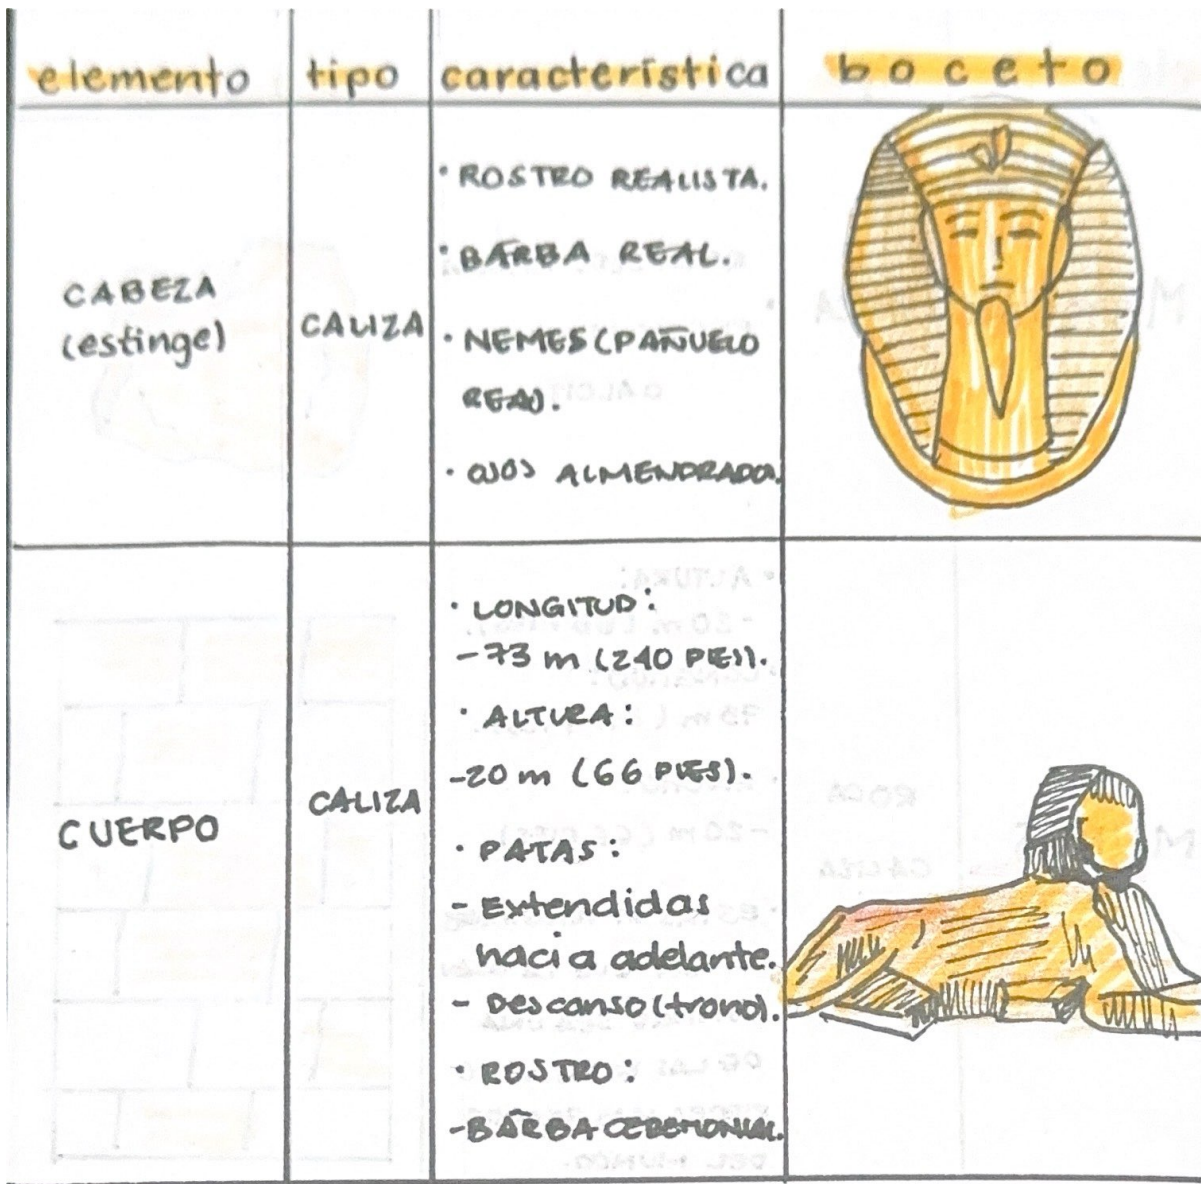 elemento tipo característica boceto
CABEZA
(estinge)
CALIZA
· ROSTRO REALISTA.
· BARBA REAL.
· NEMES (PAÑUELO
REAL).
· OJOS ALMENDRADOS.
CUERPO
CALIZA
· LONGITUD:
-73 m (240 PIES).
· ALTURA:
-20 m (66 PIES).
· PATAS:
- Extendidas
hacia adelante.
- Descanso (trono).
· ROSTRO:
-BARBA CEREMONIAL.